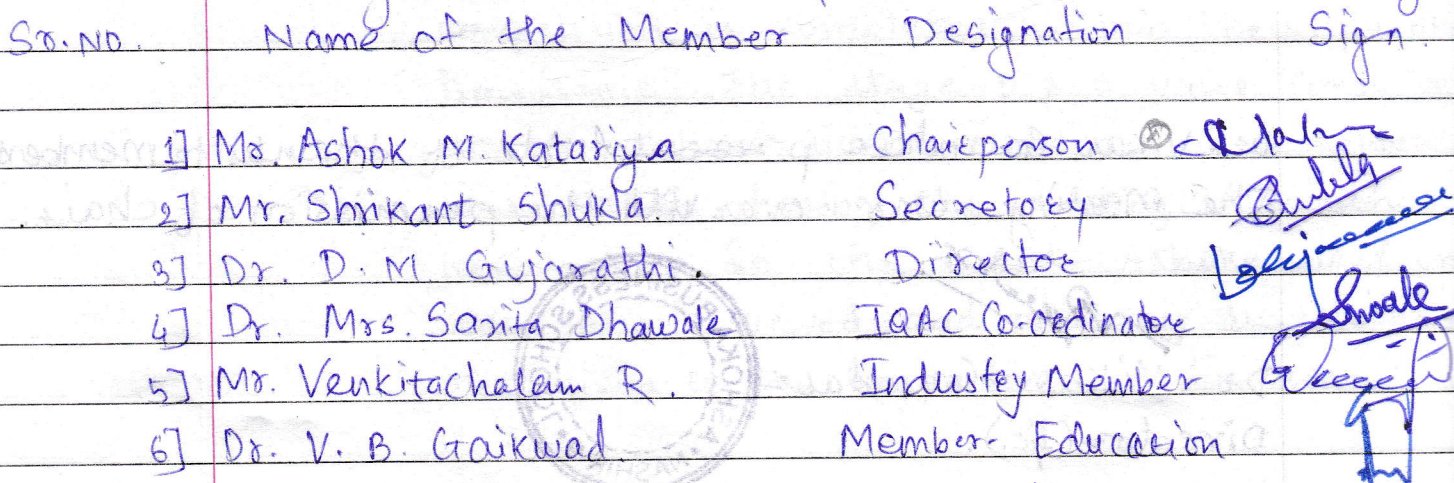 Sr. No. Name of the Member Designation Sign.
1] Mr. Ashok M. Katariya Chairperson
2] Mr. Shrikant Shukla. Secretory
3] Dr. D. M. Gujarathi. Director
4] Dr. Mrs. Sarita Dhawale IQAC Co-ordinator
5] Mr. Venkitachalam R. Industry Member
6] Dr. V. B. Gaikwad. Member- Education